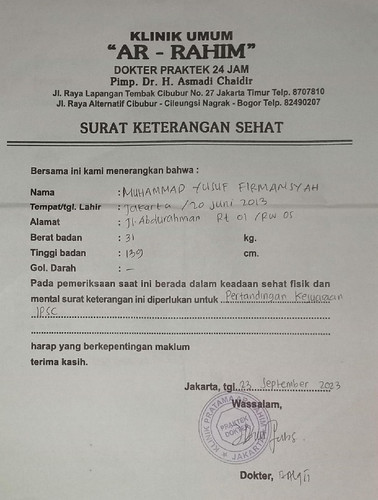 KLINIK UMUM
"AR - RAHIM"
DOKTER PRAKTEK 24 JAM
Pimp. Dr. H. Asmadi Chaidir
Jl. Raya Lapangan Tembak Cibubur No. 27 Jakarta Timur Telp. 8707810
Jl. Raya Alternatif Cibubur - Cileungsi Nagrak - Bogor Telp. 82490207
SURAT KETERANGAN SEHAT
Bersama ini kami menerangkan bahwa :
Nama : MUHAMMAD YUSUF FIRMANSYAH
Tempat/tgl. Lahir : Jakarta / 20 juni 2013
Alamat : Jl. Abdurahman Rt 01 / RW 05
Berat badan : 31 kg.
Tinggi badan : 139 cm.
Gol. Darah : -
Pada pemeriksaan saat ini berada dalam keadaan sehat fisik dan
mental surat keterangan ini diperlukan untuk Pertandingan
IPSC
harap yang berkepentingan maklum
terima kasih.
Jakarta, tgl. 23 September 2023
Wassalam,
KLINIK PRATAMA AR-RAHIM
PRAKTEK
DOKTER
JAKARTA
Dokter,